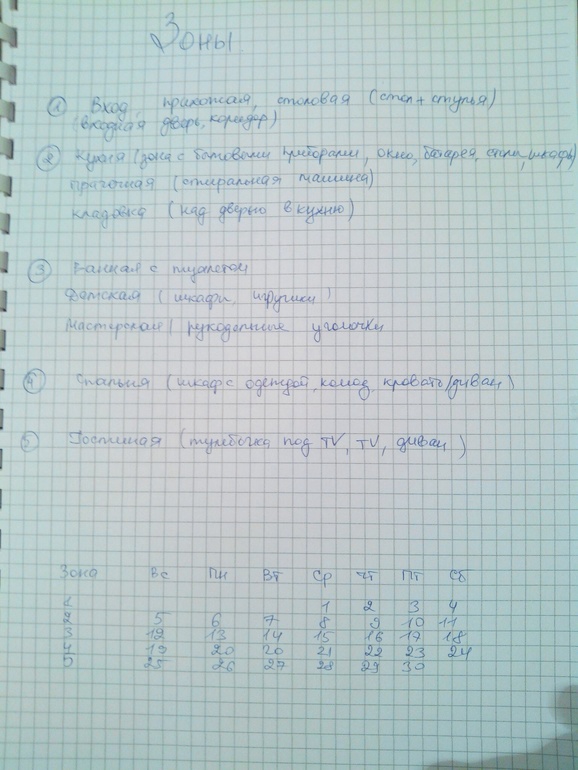 Зоны
1 Вход, прихожая, столовая (стол + стулья)
(входная дверь, коридор)
2 Кухня (зона с бытовыми приборами, окно, батарея, столы, шкафы)
прачечная (стиральная машина)
кладовка (над дверью в кухню)
3 Ванная с туалетом
Детская (шкафы, игрушки)
Мастерская / рукодельные уголочки
4 Спальня (шкаф с одеждой, комод, кровать/диван)
5 Гостиная (тумбочка под TV, TV, диван)
Зона Вс Пн Вт Ср Чт Пт Сб
1 1 2 3 4
2 5 6 7 8 9 10 11
3 12 13 14 15 16 17 18
4 19 20 20 21 22 23 24
5 25 26 27 28 29 30